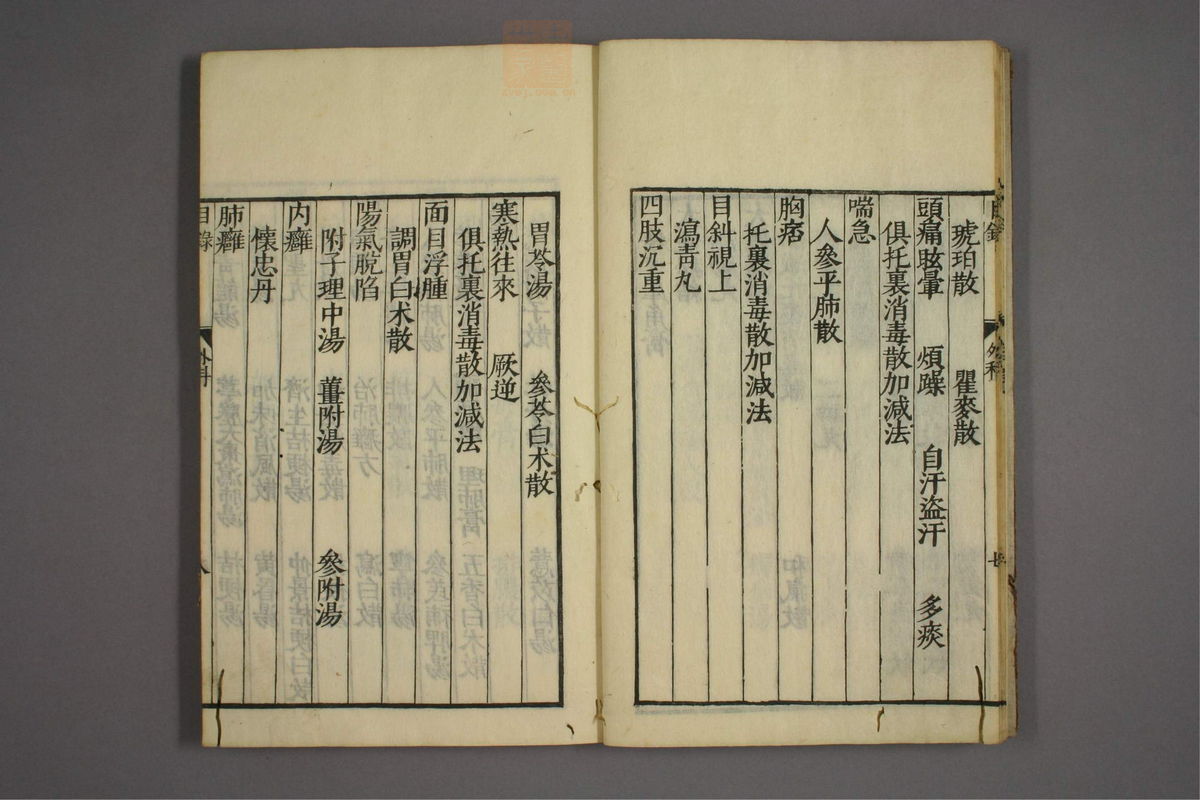 琥珀散 瞿麥散
頭痛眩暈 煩躁 自汗盜汗 多痰
俱托裏消毒散加減法
喘急
人參平肺散
胸痞
托裏消毒散加減法
目斜視上
瀉靑丸
四肢沉重
胃苓湯 參苓白术散
寒熱往來 厥逆
俱托裏消毒散加減法
面目浮腫
調胃白术散
陽氣脫陷
附子理中湯 薑附湯 參附湯
内癰
懷忠丹
肺癰
目錄